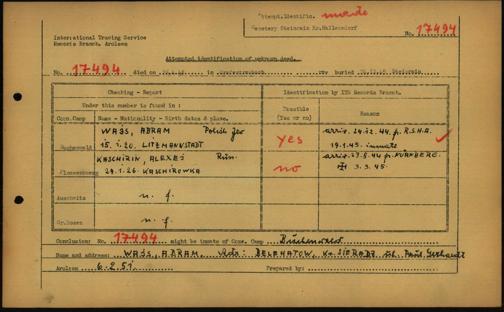 Attempt.Identific. made
Cemetery Steinrain Kr.Mallersdorf
No. 17494
International Tracing Service
Records Branch, Arolsen
Attempted identification of unknown dead.
No. 17494 died on in now buried
Checking - Report
Identification by ITS Records Branch.
Under this number is found:
Possible (Yes or no)
Reason
Conc.Camp
Name - Nationality - Birth dates & place.
WAJS, ABRAM Polish Jew
Buchenwald
15.1.20. LITZMANNSTADT
yes
arriv. 24.12.44 p. R.S.H.A.
19.1.45.
KASCHIRIN, ALEXEJ Russ.
Flossenbürg
24.1.26. KASCHIROWKA
no
arriv. 27.8.44 p. NÜRNBERG.
3.3.45.
Auschwitz
n. f.
Gr.Rosen
n. f.
Conclusion: No. 17494 might be inmate of Conc. Camp Buchenwald
Name and address: WAJS, ABRAM,
Arolsen 6.2.51. Prepared by: